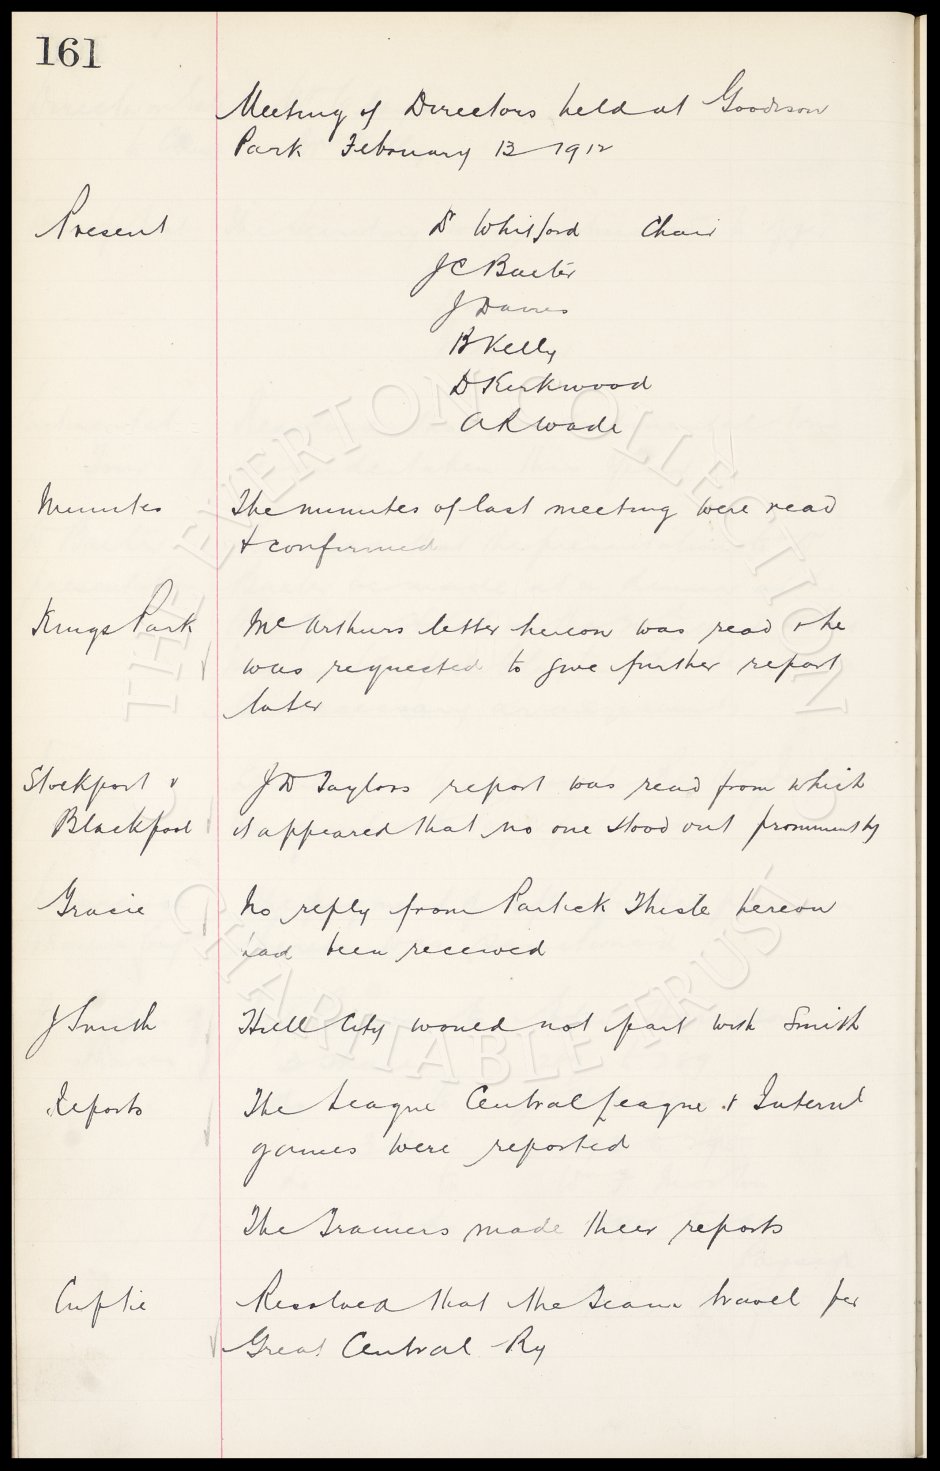 161
Meeting of Directors held at Goodison
Park February 13 1912
Present
Dr Whitford Chair
J C Baxter
J Davies
B Kelly
D Kirkwood
A R Wade
Minutes The minutes of last meeting were read
& confirmed
Kings Park McArthurs letter hereon was read & he
was requested to give further report
later
Stockport & J D Taylors report was read from which
Blackpool it appeared that no one stood out prominently
Gracie No reply from Partick Thistle hereon
had been received
J Smith Hull City would not part with Smith
Reports The League Central League & Internl
games were reported
The Trainers made their reports
Cuptie Resolved that the Team travel per
Great Central Ry
THE EVERTON COLLECTION
CHARITABLE TRUST